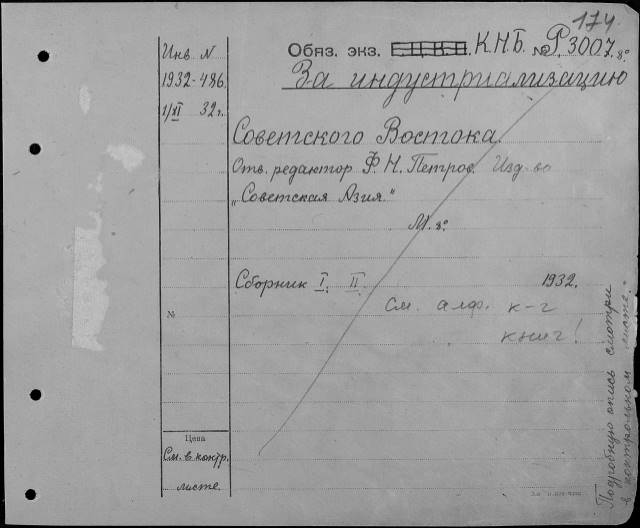 174
Обяз. экз. Е.Ц.К.П. К.Н.Б. № Р.3007.8°
За индустриализацию
Советского Востока.
Отв. редактор Ф. Н. Петров. Изд-во
„Советская Азия."
М. 8°
Сборник I, II 1932.
См. алф. к-г
книг!
Инв N
1932-486.
1/VI 32 г.
№
Цена
См. в контр.
листе.
Подробную опись смотри
в контрольном листе.